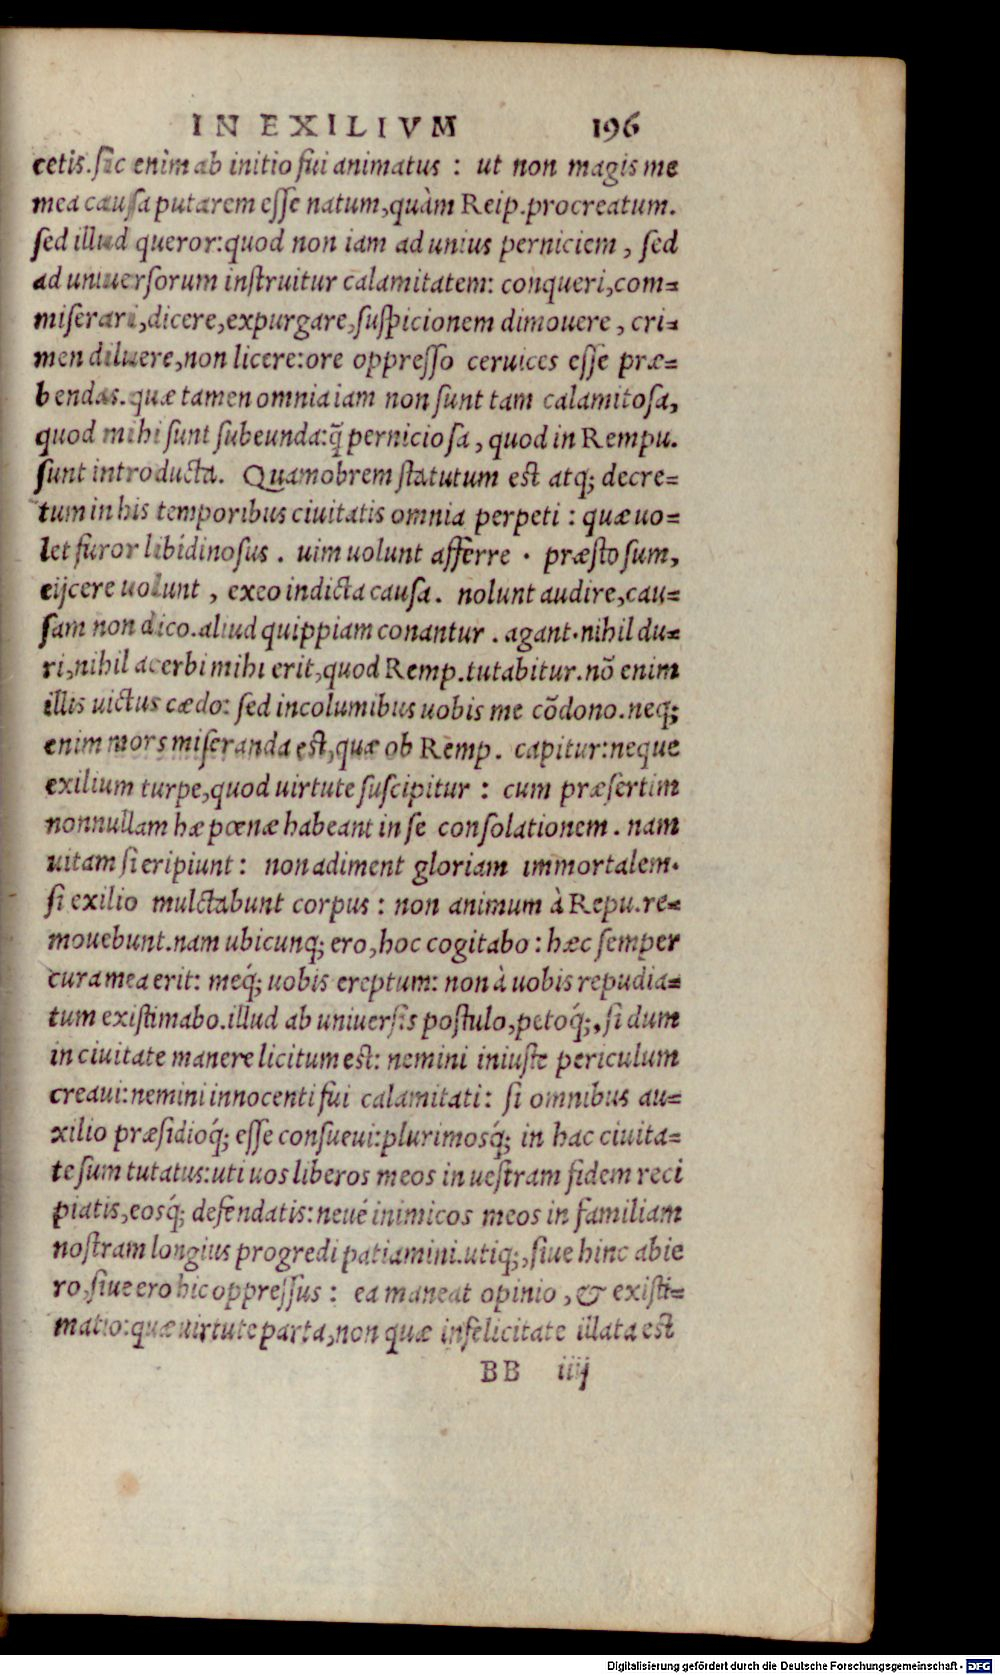 IN EXILIVM 196
cetis. sic enim ab initio fui animatus : ut non magis me
mea causa putarem esse natum, quàm Reip. procreatum.
sed illud queror: quod non iam ad unius perniciem, sed
ad uniuersorum instruitur calamitatem: conqueri, com=
miserari, dicere, expurgare, suspicionem dimouere, cri=
men diluere, non licere: ore oppresso ceruices esse præ=
bendas. quæ tamen omnia iam non sunt tam calamitosa,
quod mihi sunt subeunda: q̃ perniciosa, quod in Rempu.
sunt introducta. Quamobrem statutum est atq; decre=
tum in his temporibus ciuitatis omnia perpeti : quæ uo=
let furor libidinosus. uim uolunt afferre. præsto sum,
eijcere uolunt, exeo indicta causa. nolunt audire, cau=
sam non dico. aliud quippiam conantur. agant. nihil du=
ri, nihil acerbi mihi erit, quod Remp. tutabitur. nõ enim
illis uictus cædo: sed incolumibus uobis me cõdono. neq;
enim mors miseranda est, quæ ob Remp. capitur: neque
exilium turpe, quod uirtute suscipitur : cum præsertim
nonnullam hæ pœnæ habeant in se consolationem. nam
uitam si eripiunt: non adiment gloriam immortalem.
si exilio mulctabunt corpus : non animum à Repu. re=
mouebunt. nam ubicunq; ero, hoc cogitabo : hæc semper
cura mea erit: meq́; uobis ereptum: non à uobis repudia=
tum existimabo. illud ab uniuersis postulo, petoq́;, si dum
in ciuitate manere licitum est: nemini iniuste periculum
creaui: nemini innocenti fui calamitati: si omnibus au=
xilio præsidioq́; esse consueui: plurimosq́; in hac ciuita=
te sum tutatus: uti uos liberos meos in uestram fidem reci
piatis, eosq́; defendatis: neué inimicos meos in familiam
nostram longius progredi patiamini. utiq;, siue hinc abie
ro, siue ero hic oppressus : ea maneat opinio, & existi=
matio: quæ uirtute parta, non quæ infelicitate illata est
BB iiij
Digitalisierung gefördert durch die Deutsche Forschungsgemeinschaft - DFG